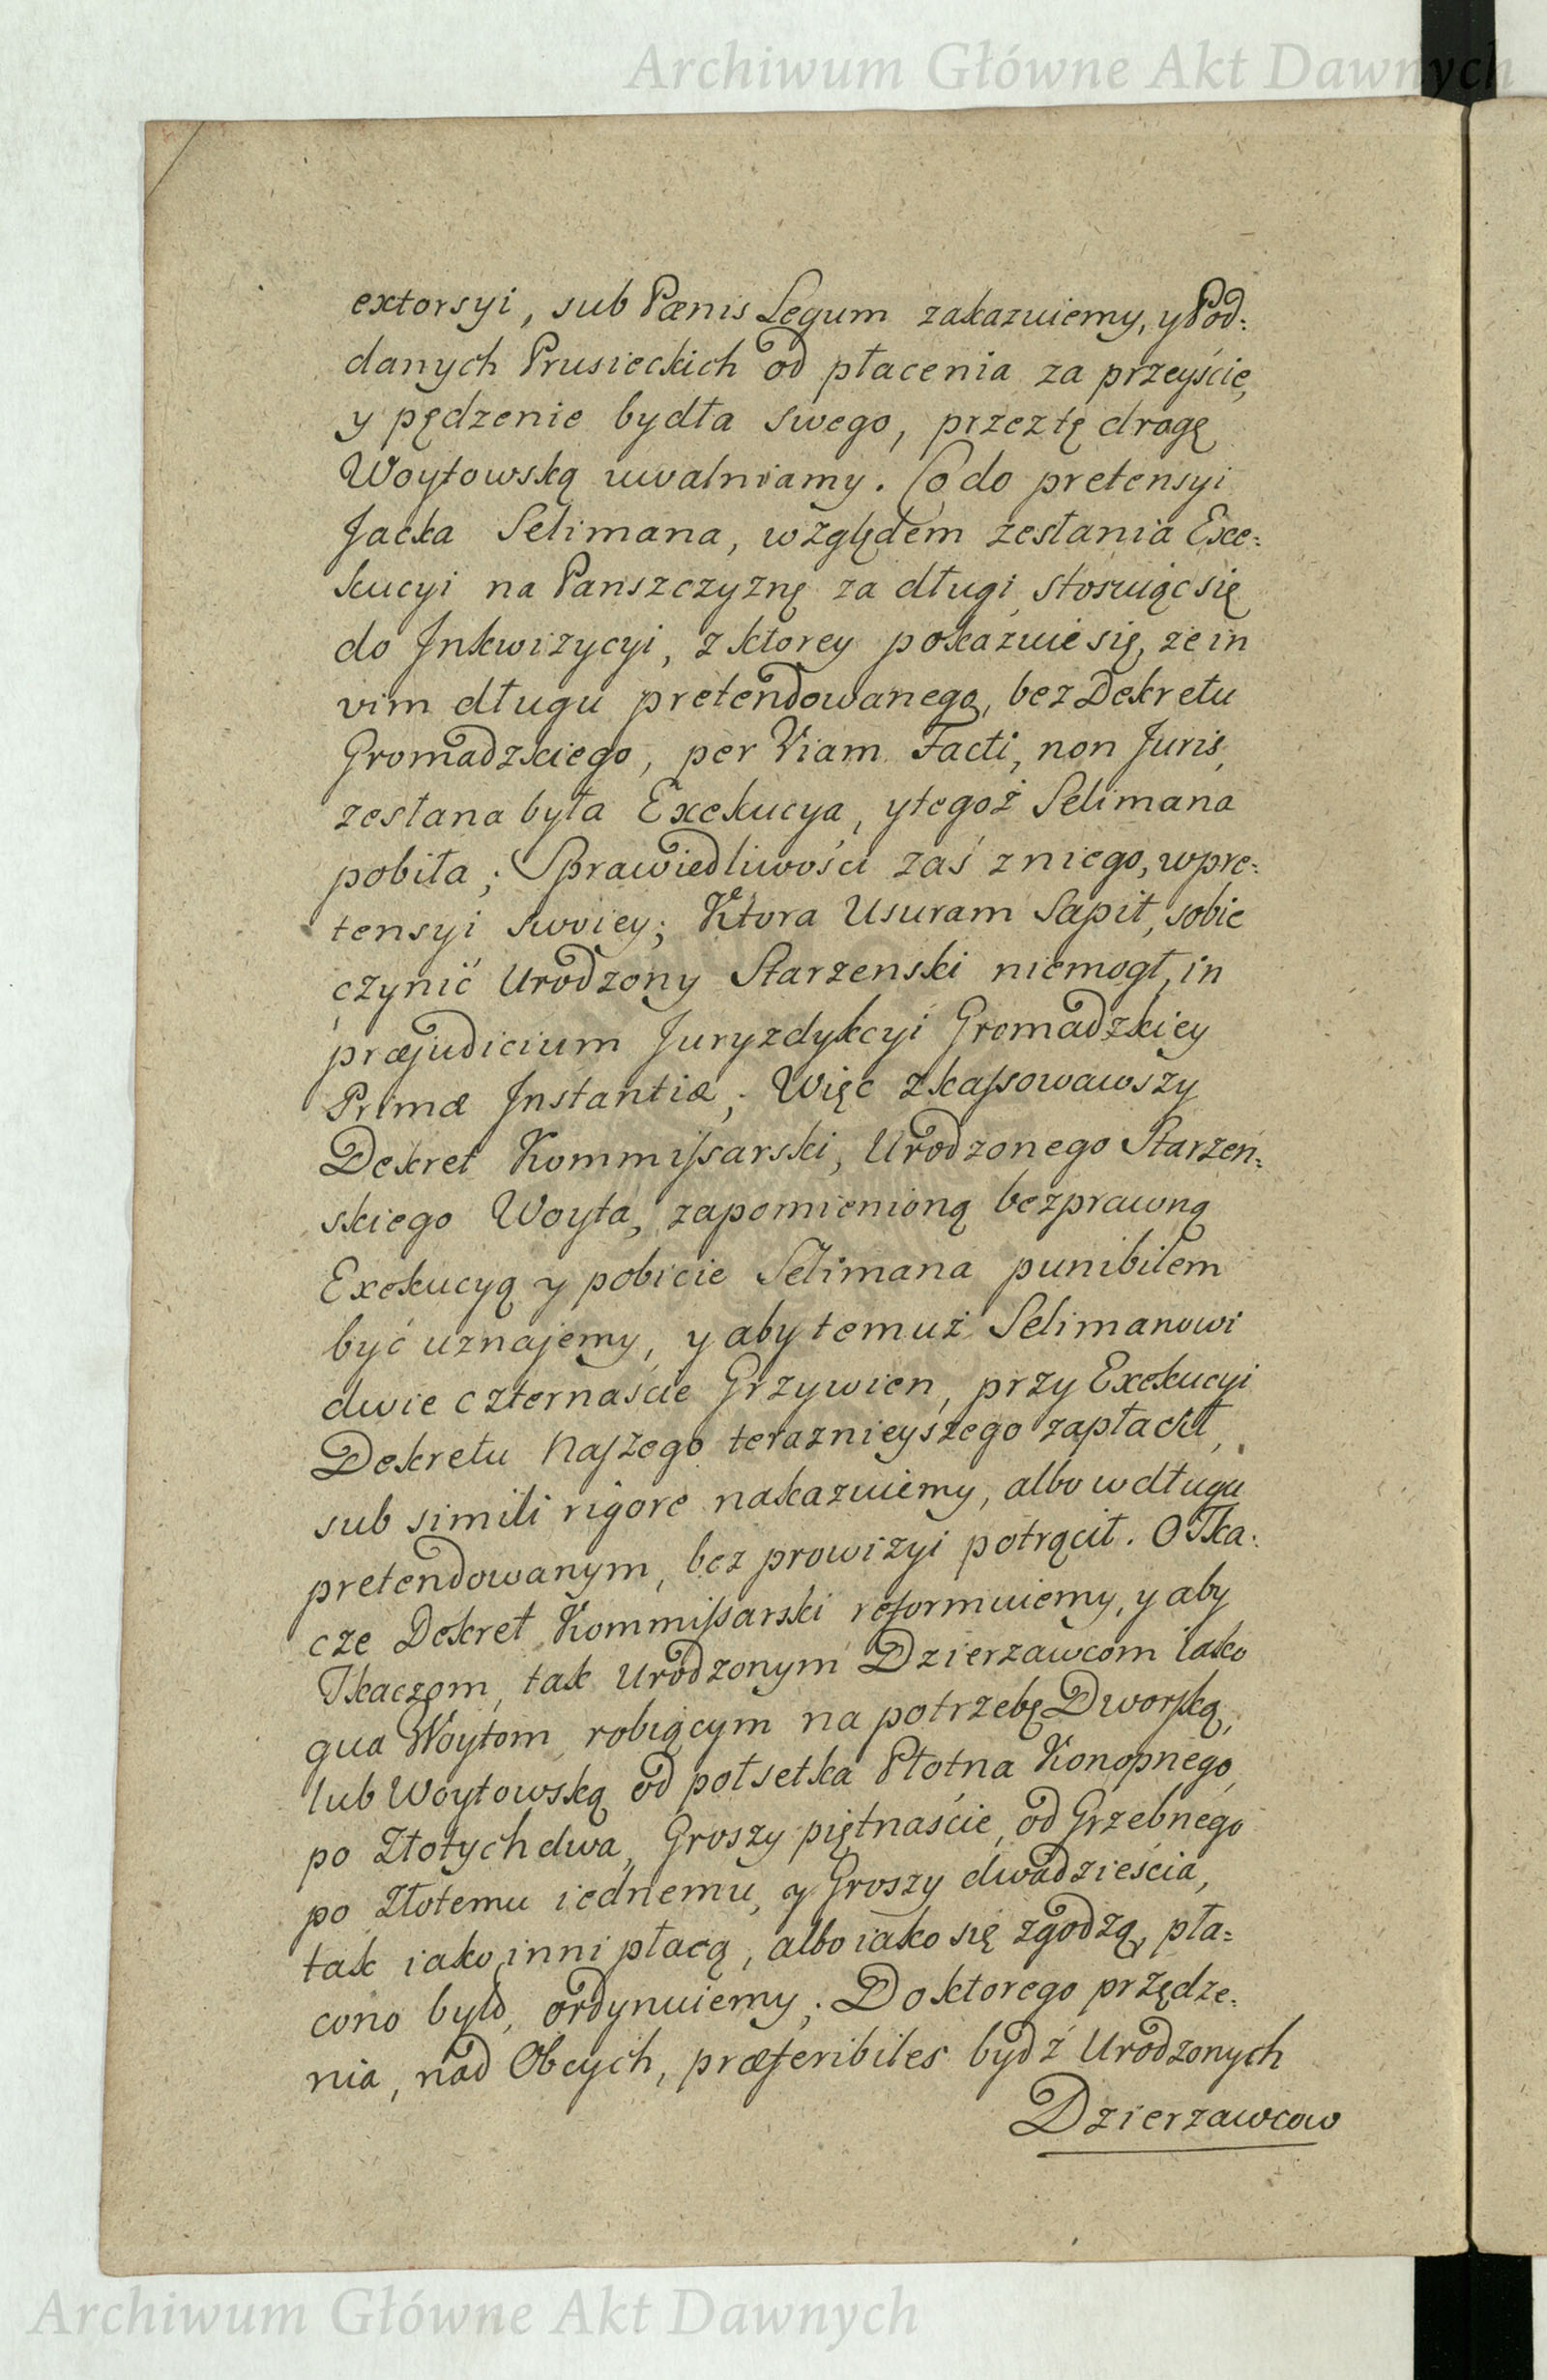 Archiwum Główne Akt Dawnych
extorsyi, sub Pœnis Legum zakazuiemy, y Pod:
danych Prusieckich od płacenia za przeyście,
y pędzenie bydła swego, przez tę drogę
Woytowską uwalniamy. Co do pretensyi
Jacka Selimana, względem zesłania Exe:
kucyi na Panszczyznę za długi stosuiąc się
do Inkwizycyi, z ktorey pokazuie się, że in
vim długu pretendowanego, bez Dekretu
Gromadzkiego, per Viam Facti, non Juris,
zesłana była Exekucya, y tegoż Selimana
pobiła; Sprawiedliwości zaś z niego, w pre:
tensyi swoiey; Ktora Usuram Sapit, sobie
czynić Urodzony Starzenski niemogł, in
præjudicium Juryzdykcyi Gromadzkiey
Primæ Instantiæ; Więc zkassowawszy
Dekret Kommissarski, Urodzonego Starzeń:
skiego Woyta, za pomienioną bezprawną
Exekucyą y pobicie Selimana punibilem
być uznajemy, y aby temuż Selimanowi
dwie czternaście Grzywien, przy Exekucyi
Dekretu Naszego teraznieyszego zapłacił,
sub simili rigore nakazuiemy, albo w długu
pretendowanym, bez prowizyi potrącił. O Tka:
cze Dekret Kommissarski reformuiemy, y aby
Tkaczom, tak Urodzonym Dzierzawcom iako
qua Woytom, robiącym na potrzebę Dworską,
lub Woytowską od połsetka Płotna Konopnego,
po Złotych dwa, Groszy piętnaście, od Grzebnego
po Złotemu iednemu, y Groszy dwadzieścia,
tak iako inni płacą, albo iako się zgodzą, pła:
cono było, ordynuiemy; Do ktorego przędze:
nia, nad Obcych, præferibiles bydź Urodzonych
Dzierzawcow
Archiwum Główne Akt Dawnych